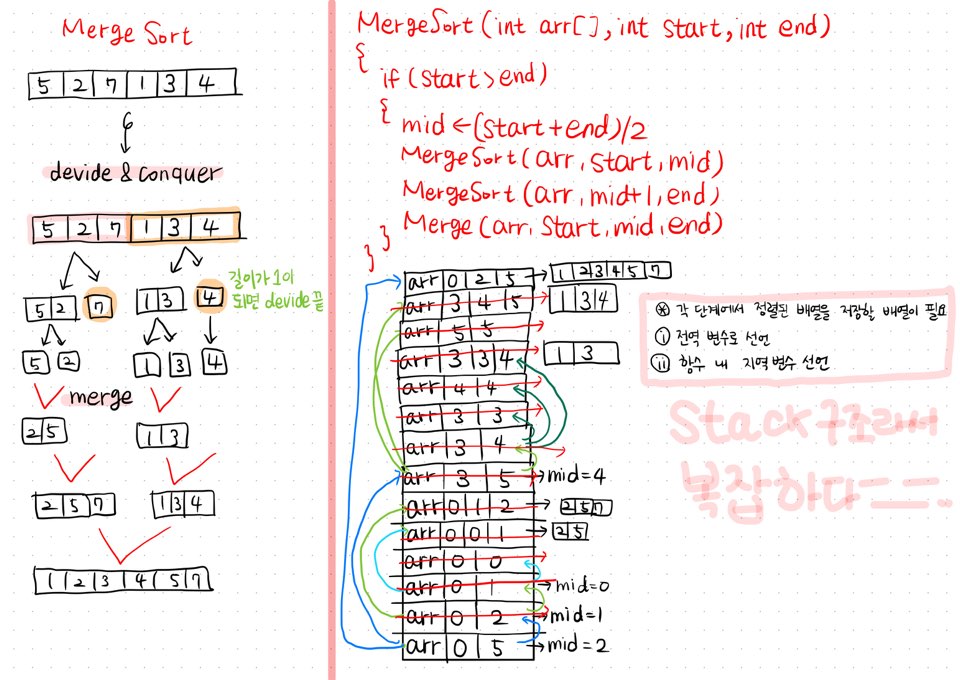 Merge Sort
5 2 7 1 3 4
devide & conquer
5 2 7 1 3 4
길이가 1이
되면 devide 끝
5 2 7 1 3 4
5 2 1 3 4
merge
2 5 1 3
2 5 7 1 3 4
1 2 3 4 5 7
MergeSort (int arr[], int start, int end)
{
if (start > end)
{
mid ← (start + end)/2
MergeSort (arr, start, mid)
MergeSort (arr, mid+1, end)
Merge (arr, start, mid, end)
}
}
arr 0 2 5 → 1 2 3 4 5 7
arr 3 4 5 1 3 4
arr 5 5
arr 3 3 4 1 3
arr 4 4
arr 3 3
arr 3 4
arr 3 5 → mid=4
arr 0 1 2 → 2 5 7
arr 0 0 1 → 2 5
arr 0 0
arr 0 1 → mid=0
arr 0 2 → mid=1
arr 0 5 → mid=2
※ 각 단계에서 정렬된 배열을 저장할 배열이 필요
i 전역 변수로 선언
ii 함수 내 지역변수 선언
Stack 구조라서
복잡하다ㅡㅡ.